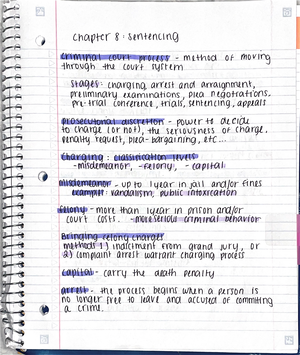 chapter 8: sentencing
criminal court process - method of moving
through the court system
stages: charging, arrest and arraignment,
preliminary examinations, plea negotiations,
pre-trial conference, trials, sentencing, appeals
prosecutorial discretion - power to decide
to charge (or not), the seriousness of charge,
penalty request, plea-bargaining, etc...
Charging: classification levels
-misdemeanor, -felony, -capital
misdemeanor - up to 1 year in jail and/or fines
example: vandalism, public intoxication
felony - more than 1 year in prison and/or
court costs. -more serious criminal behavior
Bringing felony charges
methods: 1) indictment from grand jury, or
2) complaint arrest warrant charging process
capital - carry the death penalty
arrest - the process begins when a person is
no longer free to leave and accused of committing
a crime.